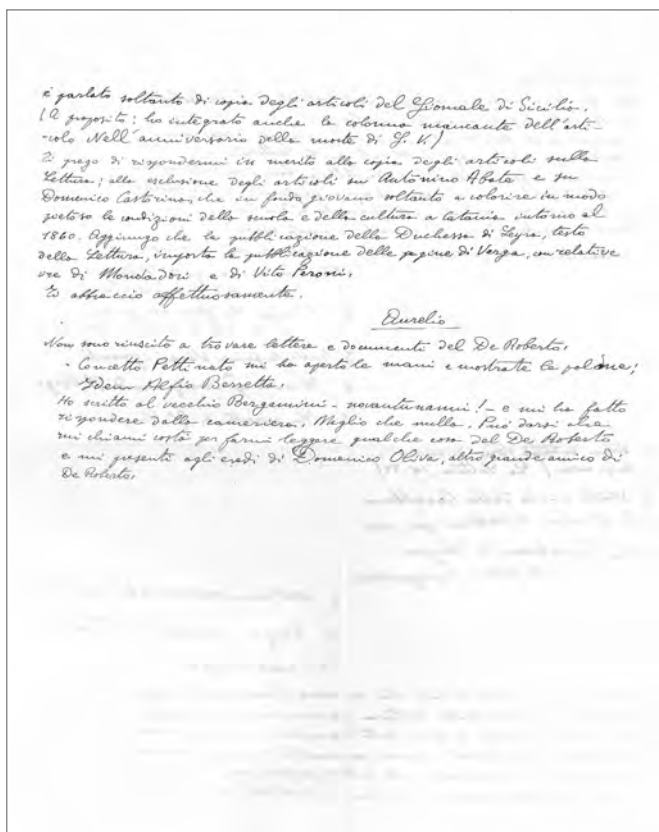 è parlato soltanto di copia degli articoli del Giornale di Sicilia.
(A proposito: ho integrato anche la colonna mancante dell'arti-
-colo Nell'anniversario della morte di G. V.)
Ti prego di rispondermi in merito alla copia degli articoli sulla
Lettura; alla esclusione degli articoli su Antonino Abate e su
Domenico Castorina, che in fondo giovano soltanto a colorire in modo
le condizioni della scuola e della cultura a Catania intorno al
1860. Aggiungo che la pubblicazione della Duchessa di Leyra, testo
della Lettura, importa la pubblicazione delle pagine di Verga, con relative
ire di Mondadori e di Vito Perroni.
Ti abbraccio affettuosamente.
Aurelio
Non sono riuscito a trovare lettere e documenti del De Roberto.
Concetto Pettinato mi ha aperto le mani e mostrate le palme;
Idem Alfio Berretta.
Ho scritto al vecchio Bergamini - novantunanni! - e mi ha fatto
rispondere dalla cameriera. Meglio che nulla. Può darsi che
mi chiami costà per farmi leggere qualche cosa del De Roberto
e mi presenti agli eredi di Domenico Oliva, altro grande amico di
De Roberto.